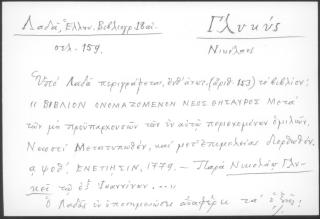 Λαδᾶ, Ἑλλην. Βιβλιογρ. 18αἰ.
Γλυκύς
σελ. 159.
Νικόλαος
Ὑπὸ Λαδᾶ περιγράφεται, (ἀριθ. 153) τὸ βιβλίον:
" ΒΙΒΛΙΟΝ ΟΝΟΜΑΖΟΜΕΝΟΝ ΝΕΟΣ ΘΗΣΑΥΡΟΣ Μετὰ
τῶν μὴ προϋπαρχουσῶν τῶν ἐν αὐτῷ περιεχομένων ὁμιλιῶν.
Νεωστὶ Μετατυπωθὲν, καὶ μετ' ἐπιμελείας διορθωθέν.
αψοθ'. ΕΝΕΤΙΗΣΙΝ, 1779. — Παρὰ Νικολάῳ Γλυ-
κεῖ τῷ ἐξ Ἰωαννίνων....."
Ὁ Λαδᾶς ἐν ὑποσημειώσει ἀναφέρει τὰ ἑξῆς: